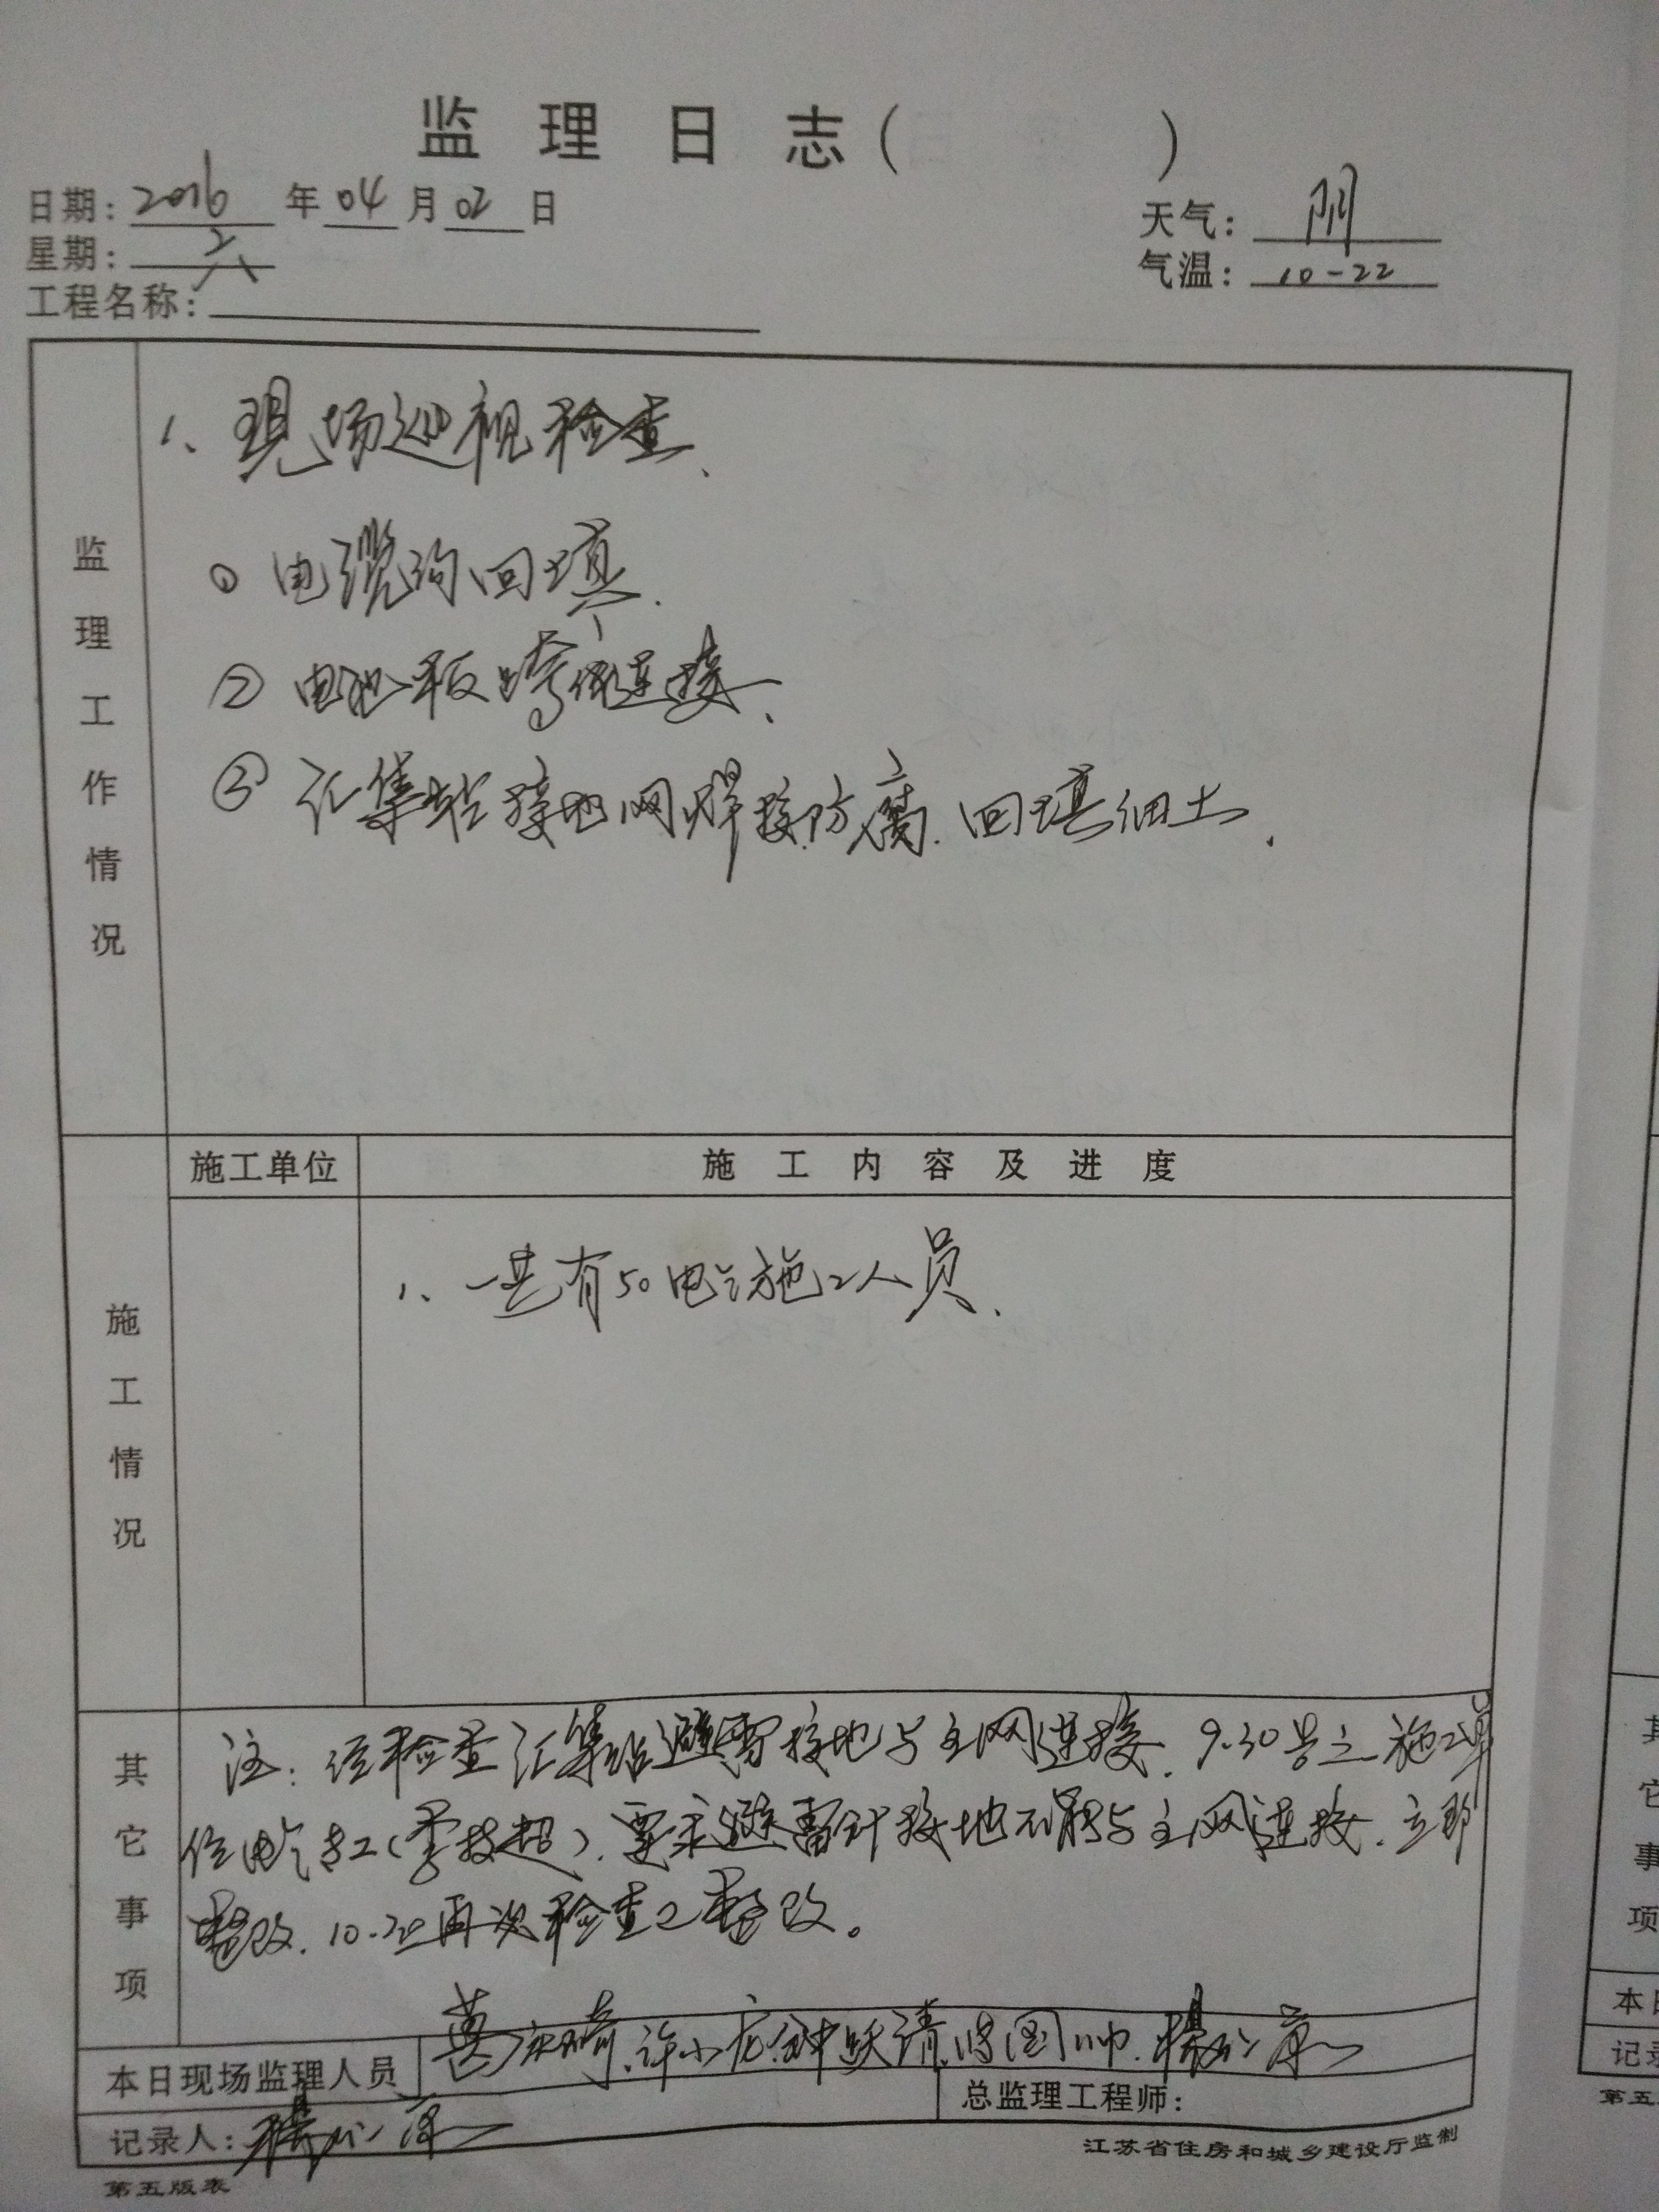 监理日志（ ）
日期：2016年04月02日
天气：阴
星期：六
气温：10-22
工程名称：
监理工作情况
1、现场巡视检查、
① 电缆沟回填.
② 电池板跨 连接、
③ 汇集站接地网焊接防腐.回填细土、
施工单位
施工内容及进度
施工情况
1、一共有50电气施工人员、
其它事项
注：经检查汇集站避雷接地与主网连接.9.30 施工单
位电气 工(李 超).要求避雷针接地不能与主网连接.立即
整改.10.20再次检查已整改。
本日现场监理人员
许小龙.
记录人：
总监理工程师：
第五版表
江苏省住房和城乡建设厅监制
其
它
事
项
本日
记录
第五